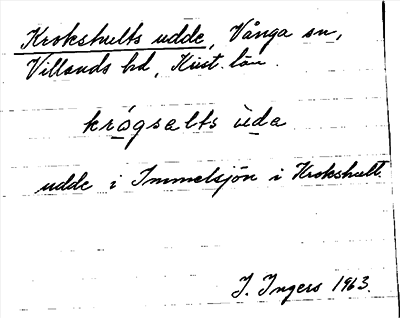 Krokshults udde, Vånga sn,
Villands hd, Krist. län.
krógsalts ùda
udde i Immelsjön i Krokshult.
I. Ingers 1963.